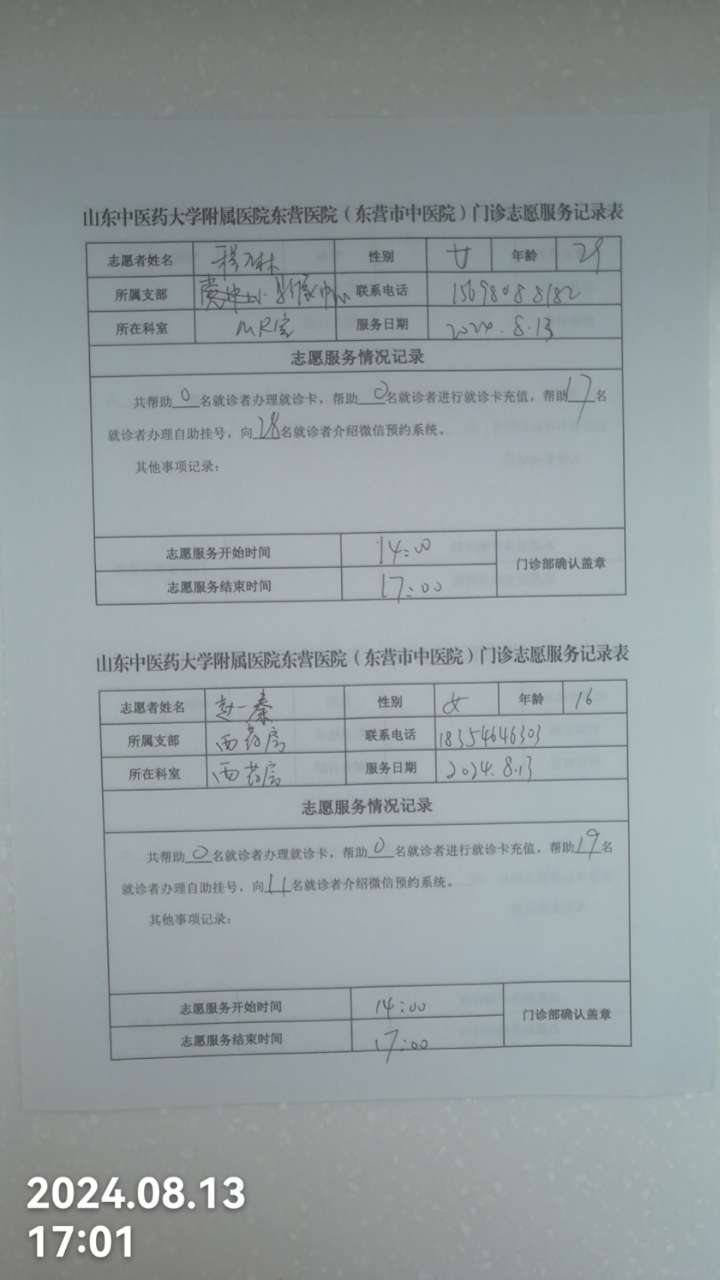 山东中医药大学附属医院东营医院（东营市中医院）门诊志愿服务记录表
志愿者姓名 性别 女 年龄 29
所属支部 联系电话 15698088182
所在科室 MR室 服务日期 2024.8.13
志愿服务情况记录
共帮助0名就诊者办理就诊卡，帮助0名就诊者进行就诊卡充值，帮助17名
就诊者办理自助挂号，向28名就诊者介绍微信预约系统。
其他事项记录：
志愿服务开始时间 14:00
门诊部确认盖章
志愿服务结束时间 17:00
山东中医药大学附属医院东营医院（东营市中医院）门诊志愿服务记录表
志愿者姓名 赵一秦 性别 女 年龄 16
所属支部 西药房 联系电话 18354646303
所在科室 西药房 服务日期 2024.8.13
志愿服务情况记录
共帮助0名就诊者办理就诊卡，帮助0名就诊者进行就诊卡充值，帮助19名
就诊者办理自助挂号，向11名就诊者介绍微信预约系统。
其他事项记录：
志愿服务开始时间 14:00
门诊部确认盖章
志愿服务结束时间 17:00
2024.08.13
17:01